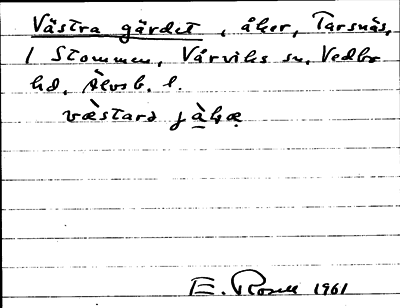 Västra gärdet, åker, Tarsnäs,
1 Stommen, Vårviks sn, Vedbo
hd, Älvsb. l.
væ̀starə jàɫæ
E. Rosell 1961